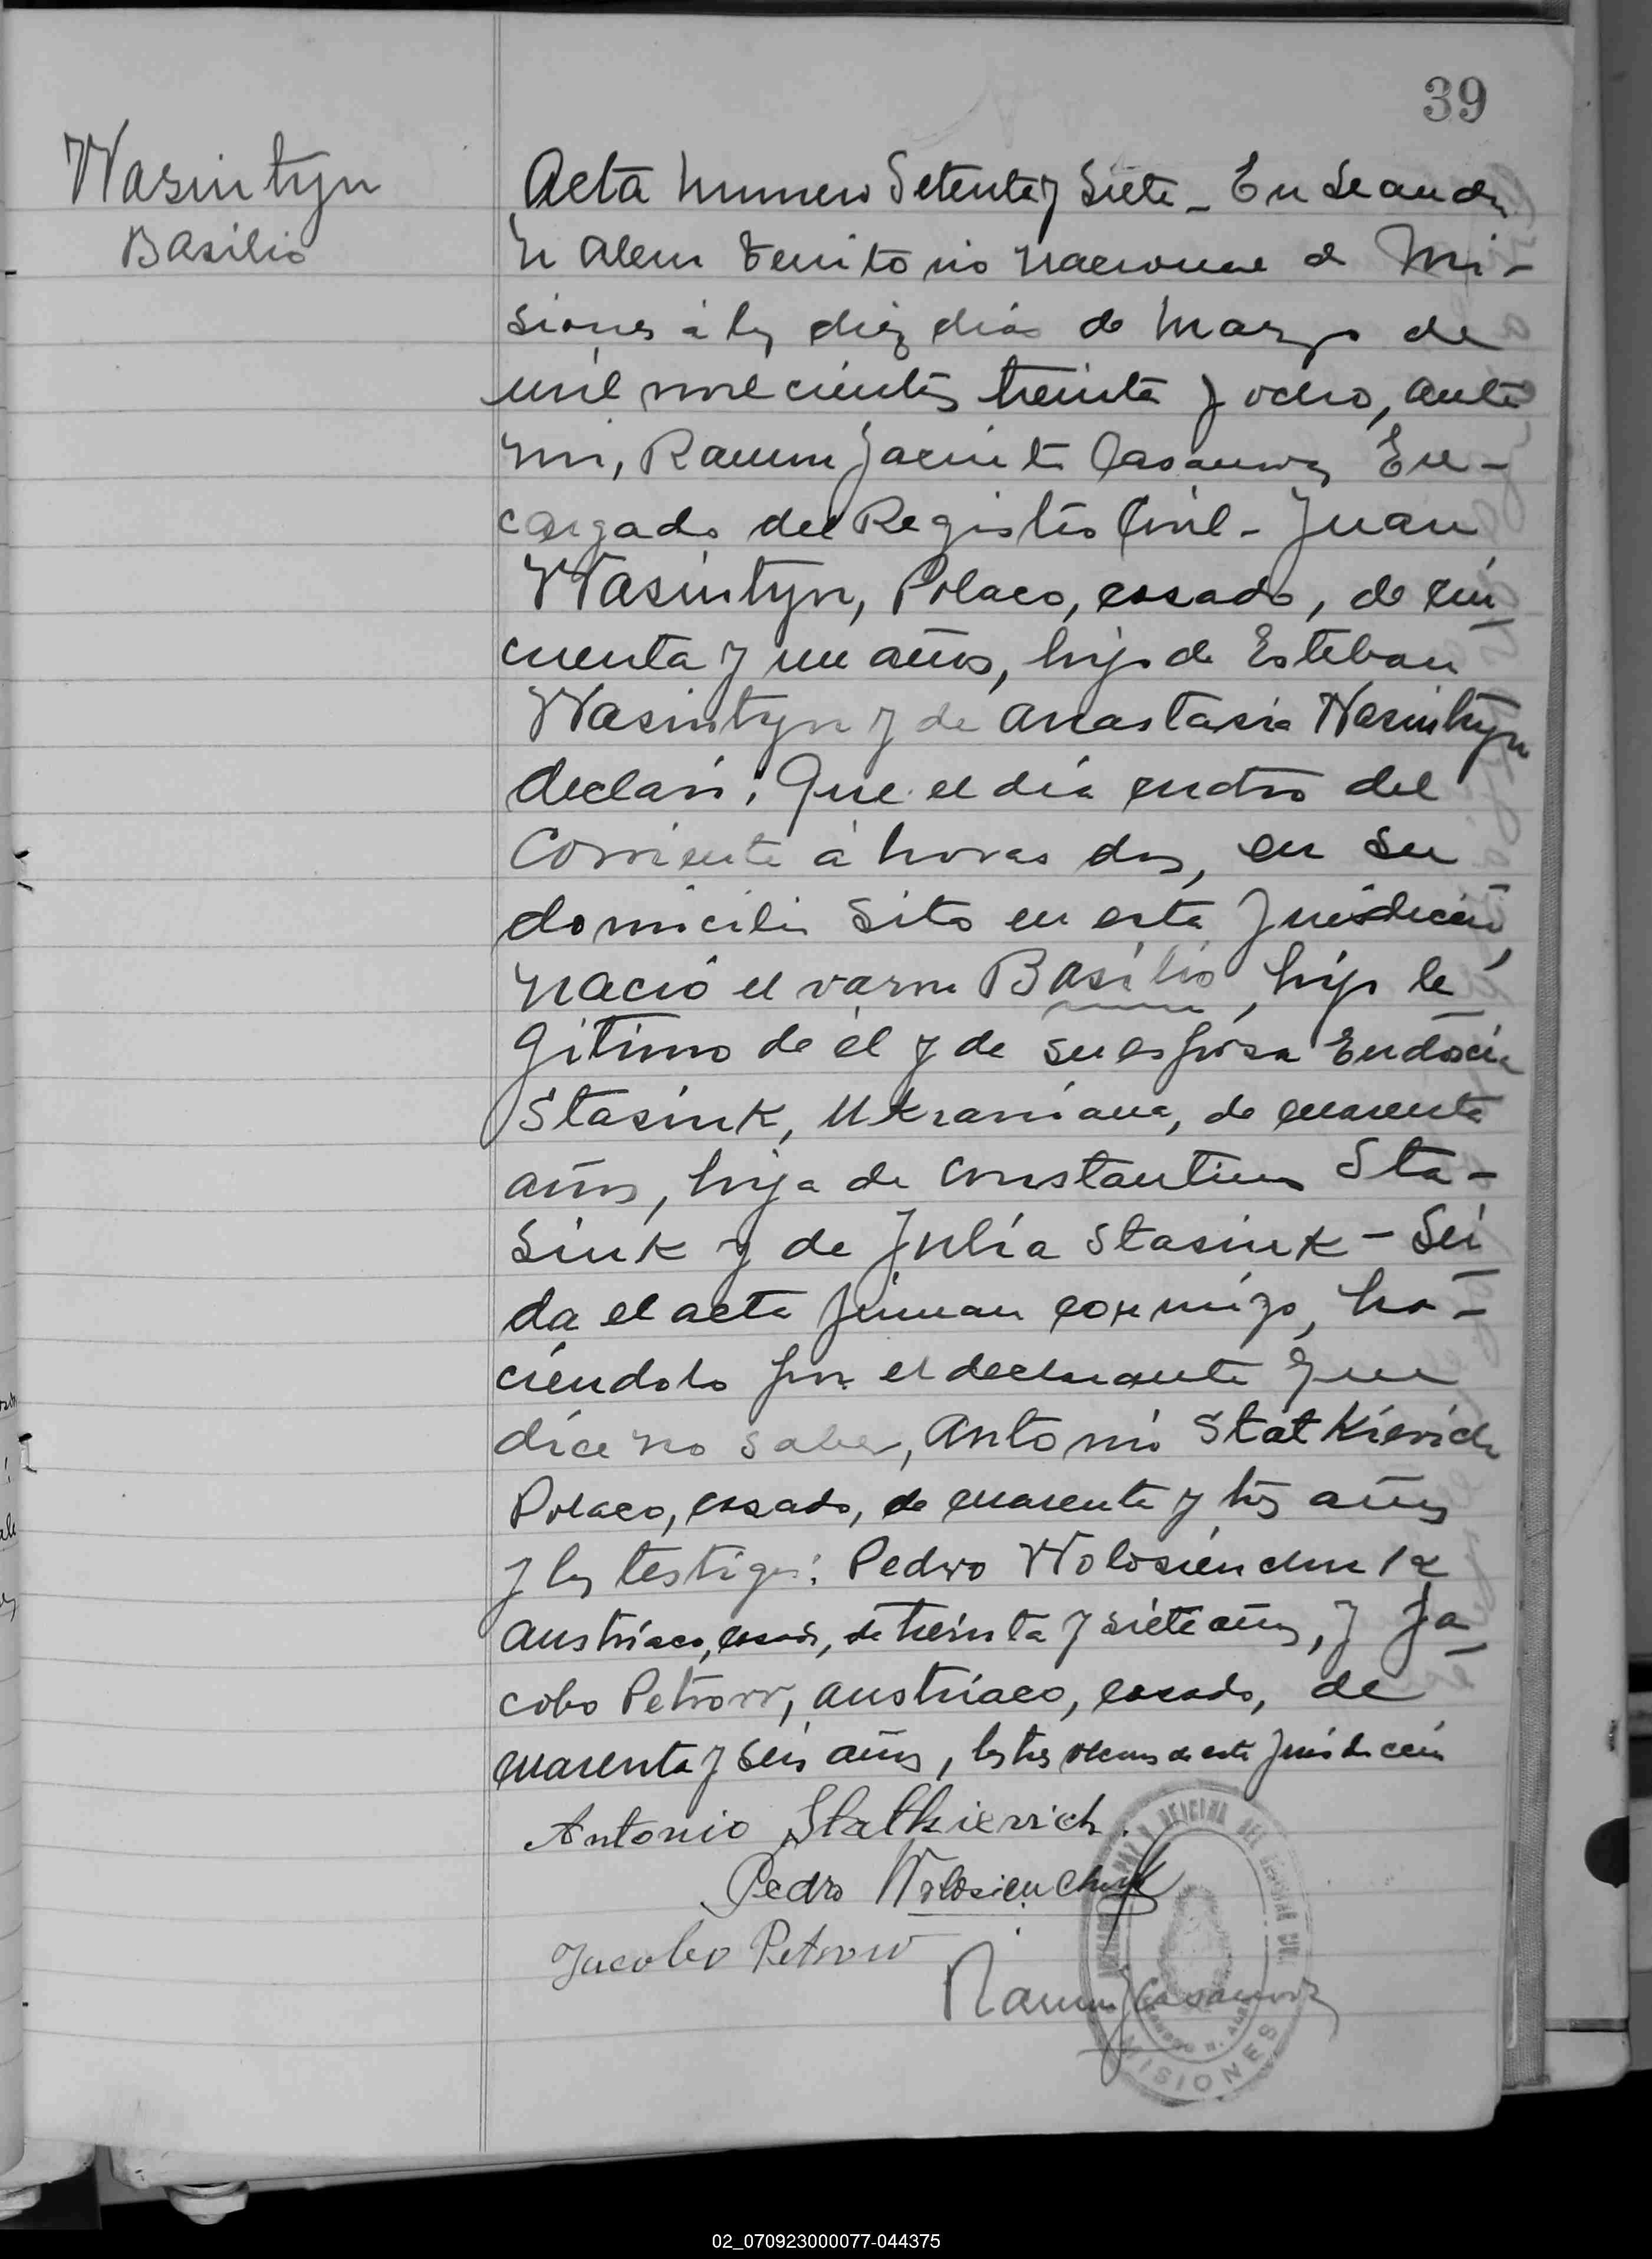 39
Wasintyn
Basilio
Acta Numero Setenta y Siete - En Leandro
N Alem Territorio Nacional de Mi-
siones á los diez dias de Marzo de
mil novecientos treinta y ocho, ante
mi, Ramon Jacinto Casanova En-
cargado del Registro Civil - Juan
Wasintyn, Polaco, casado, de cin
cuenta y un años, hijo de Esteban
Wasintyn y de Anastasia Wasintyn
declaró: Que el día cuatro del
Corriente á horas dos, en su
domicilio sito en esta Jurisdicción,
nació el varon Basilio, hijo le
gitimo de él y de su esposa Eudocia
Stasiuk, Ukraniana, de cuarenta
años, hija de Constantino Sta-
siuk y de Julia Stasiuk - Lei
da el acta firman conmigo, ha-
ciéndolo por el declarante que
dice no saber, Antonio Statkievich
Polaco, casado, de cuarenta y tres años
y los testigos: Pedro Wolosienchuk
Austriaco, casado, de treinta y siete años, y Ja
cobo Petrow, austriaco, casado, de
cuarenta y seis años, los tres vecinos de esta Jurisdicción
Antonio Statkievich.
Pedro Wolosienchuk
Jacobo Petrow
Ramon J Casanova
MISIONES
02_070923000077-044375